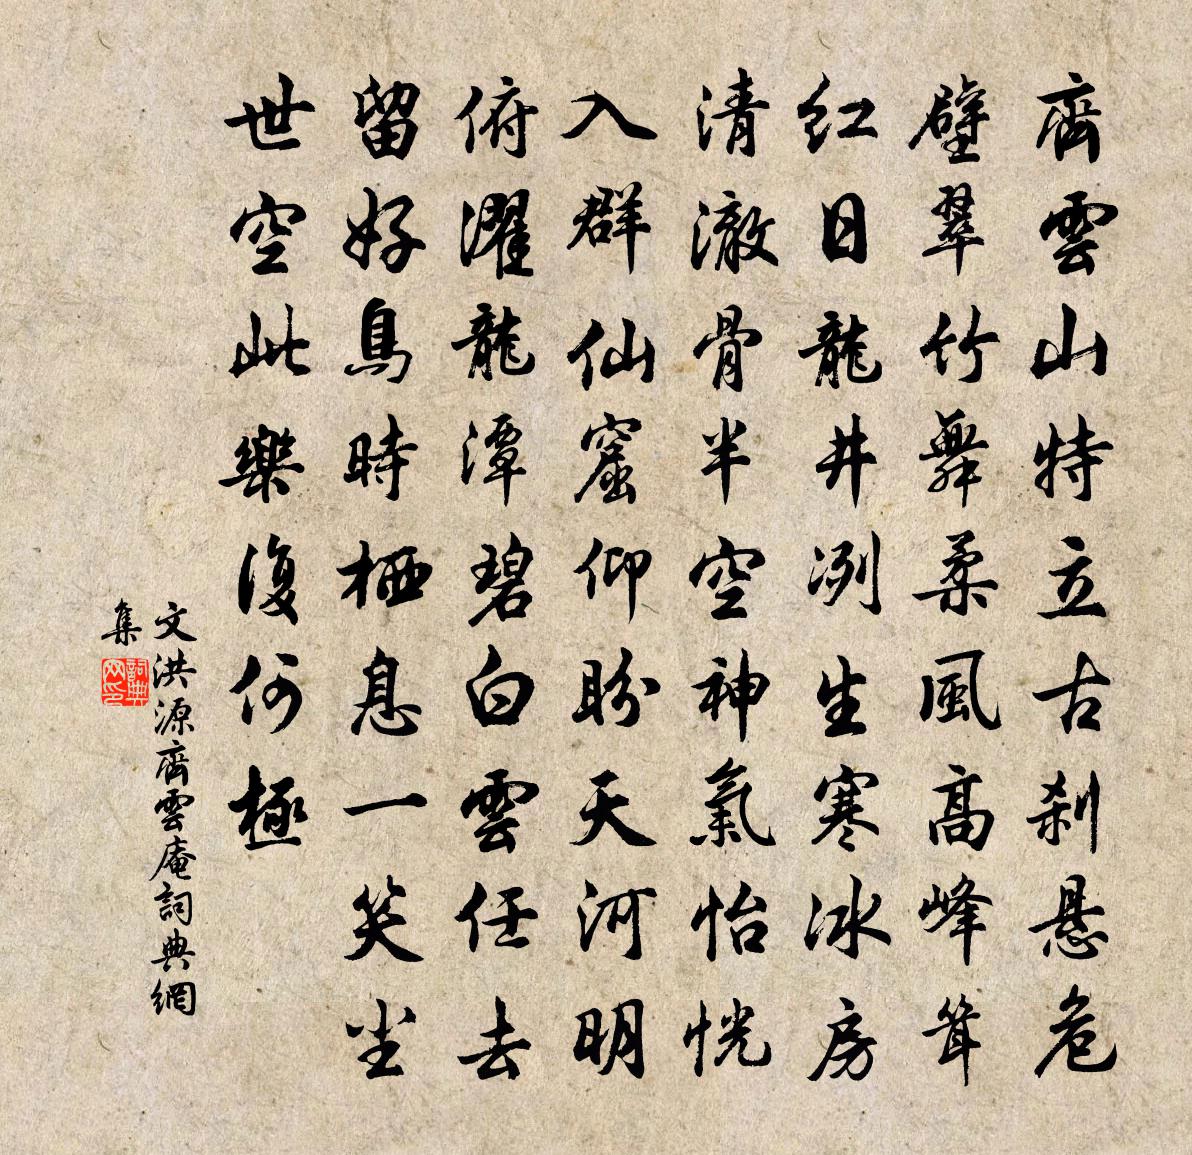 齊雲山特立古刹悬危
壁翠竹舞柔風高峰聳
红日龍井冽生寒冰房
清澈骨半空神氣怡恍
入群仙窟仰盼天河明
俯濯龍潭碧白雲任去
留好鳥時栖息一笑尘
世空此樂復何極
文洪源齊雲庵詞典網
集
詞典网印